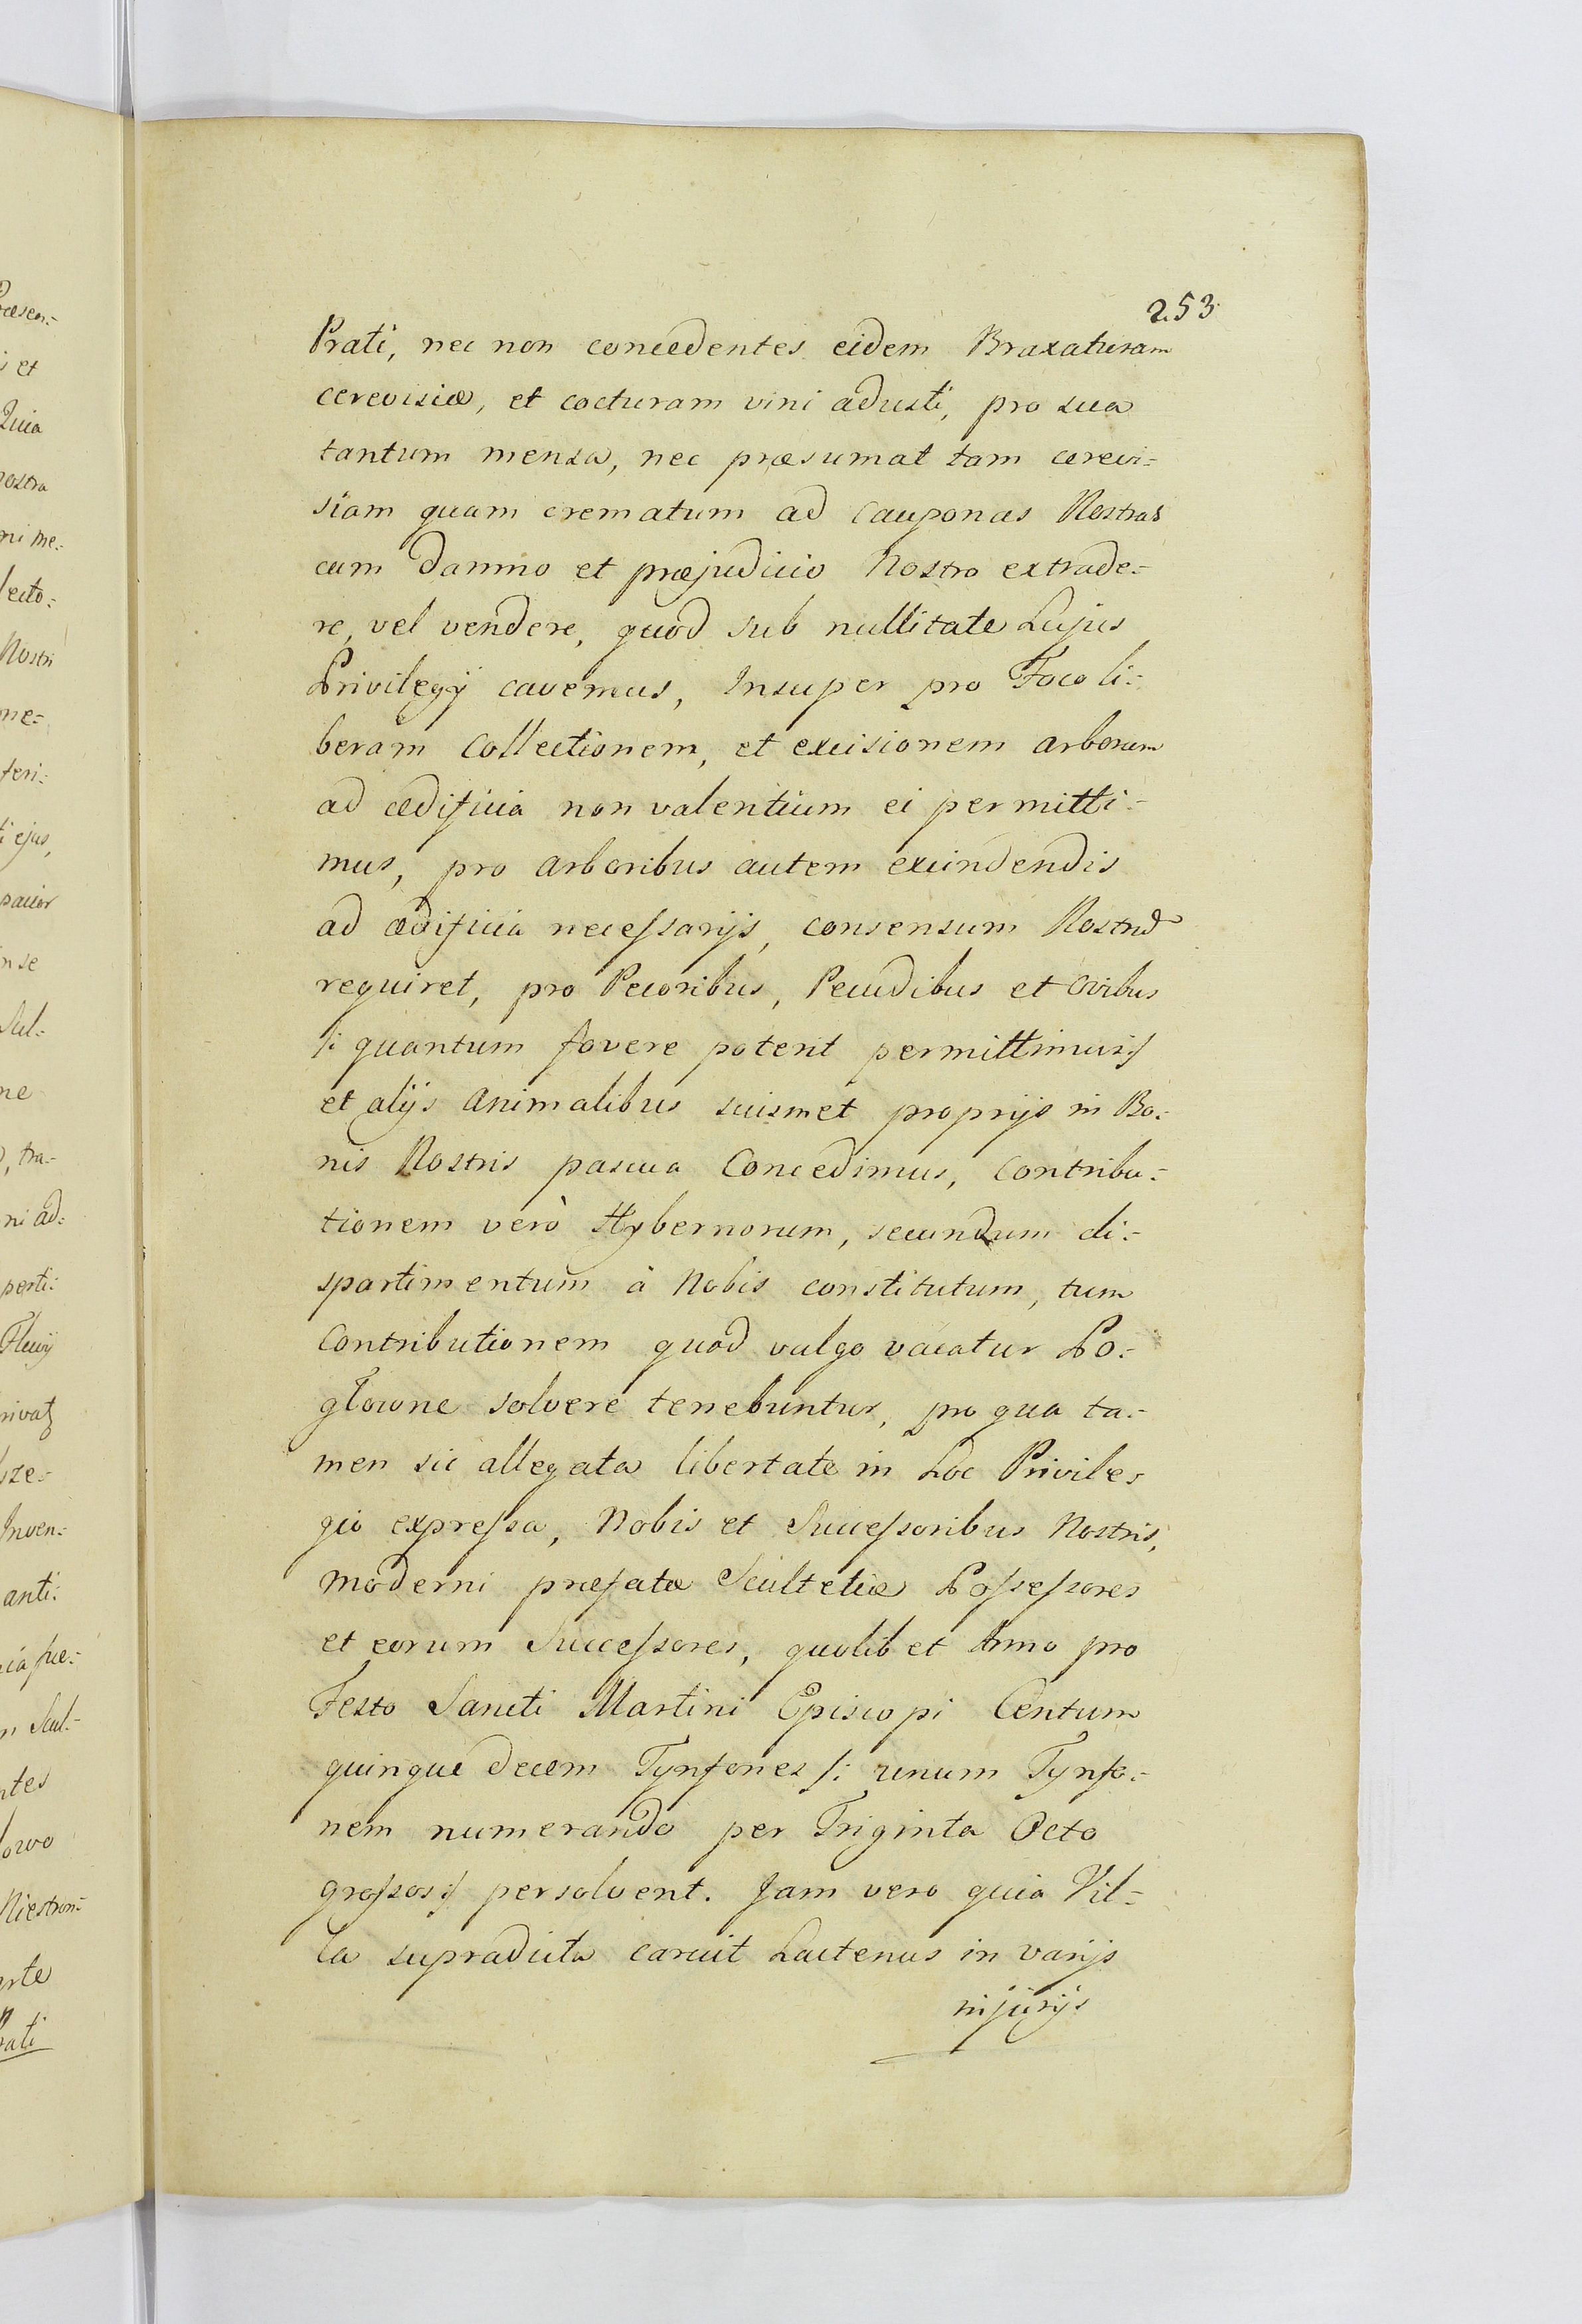 253.
Prati, nec non concedentes eidem Braxaturam
cerevisiæ, et cocturam vini adusti, pro sua
tantum mensa, nec præsumat tam cerevi=
siam quam crematum ad cauponas Nostras
cum damno et præjudicio Nostro extrade=
re, vel vendere, quod sub nullitate hujus
Privilegij cavemus, Insuper pro Foco li=
beram collectionem, et excisionem arborum
ad ædificia non valentium ei permitti=
mus, pro arboribus autem excindendis
ad ædificia necessarijs, consensum Nostrum
requiret, pro Pecoribus, Pecudibus et ovibus
/: quantum fovere poterit permittimus :/
et alijs animalibus suismet proprijs in Bo=
nis Nostris pascua Concedimus, contribu=
tionem verò Hybernorum, secundum di=
spartimentum à Nobis constitutum, tum
contributionem quod vulgo vocatur Po=
głowne solvere tenebuntur, pro qua ta=
men sic allegata libertate in hoc Privile=
gio expressa, Nobis et Successoribus Nostris,
moderni præfatæ Scultetiæ Possessores
et eorum Successores, quolibet Anno pro
Festo Sancti Martini Episcopi Centum
quinque decem Tynfones /: unum Tynfo=
nem numerando per Triginta Octo
grossos :/ persolvent. Jam vero quia Vil=
la supradicta caruit hactenus in varijs
injurijs
Præsen=
i et
Quia
nostra
ni me=
lecto=
Nostri
ne=
feri=
ti ejus,
pacior
in se
Scul=
ne
, tra=
ni ad=
perti=
Fluvij
Inven=
anti=
Scul=
ntes
Niestron=
rte
Prati